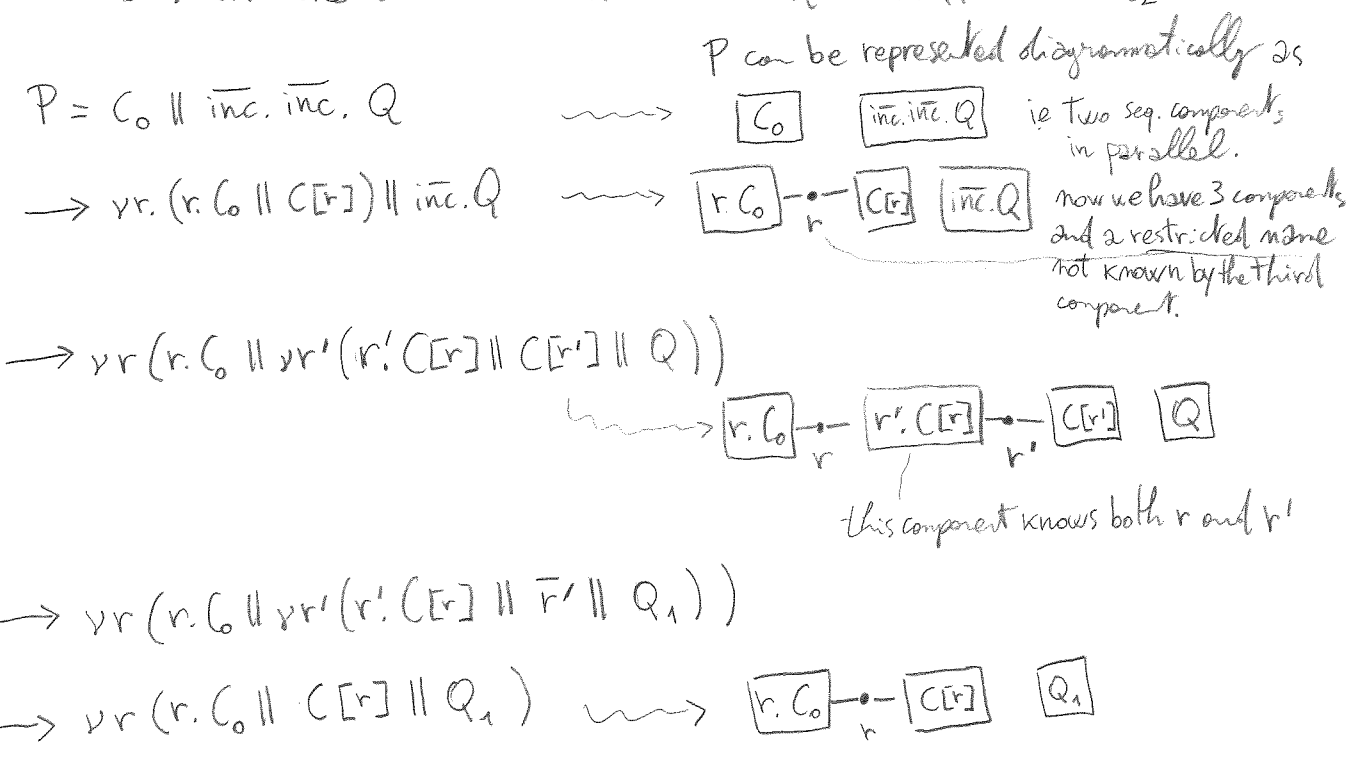 P can be represented diagrammatically as
P = C₀ || i̅n̅c̅. i̅n̅c̅. Q
C₀
i̅n̅c̅. i̅n̅c̅. Q
ie two seq. components
in parallel.
→ νr. (r. C₀ || C[r]) || i̅n̅c̅. Q
r. C₀
r
C[r]
i̅n̅c̅. Q
now we have 3 components
and a restricted name
not known by the third
component.
→ νr (r. C₀ || νr' (r'. C[r] || C[r'] || Q))
r. C₀
r
r'. C[r]
r'
C[r']
Q
this component knows both r and r'
→ νr (r. C₀ || νr' (r'. C[r] || r̅' || Q₁))
→ νr (r. C₀ || C[r] || Q₁)
r. C₀
r
C[r]
Q₁